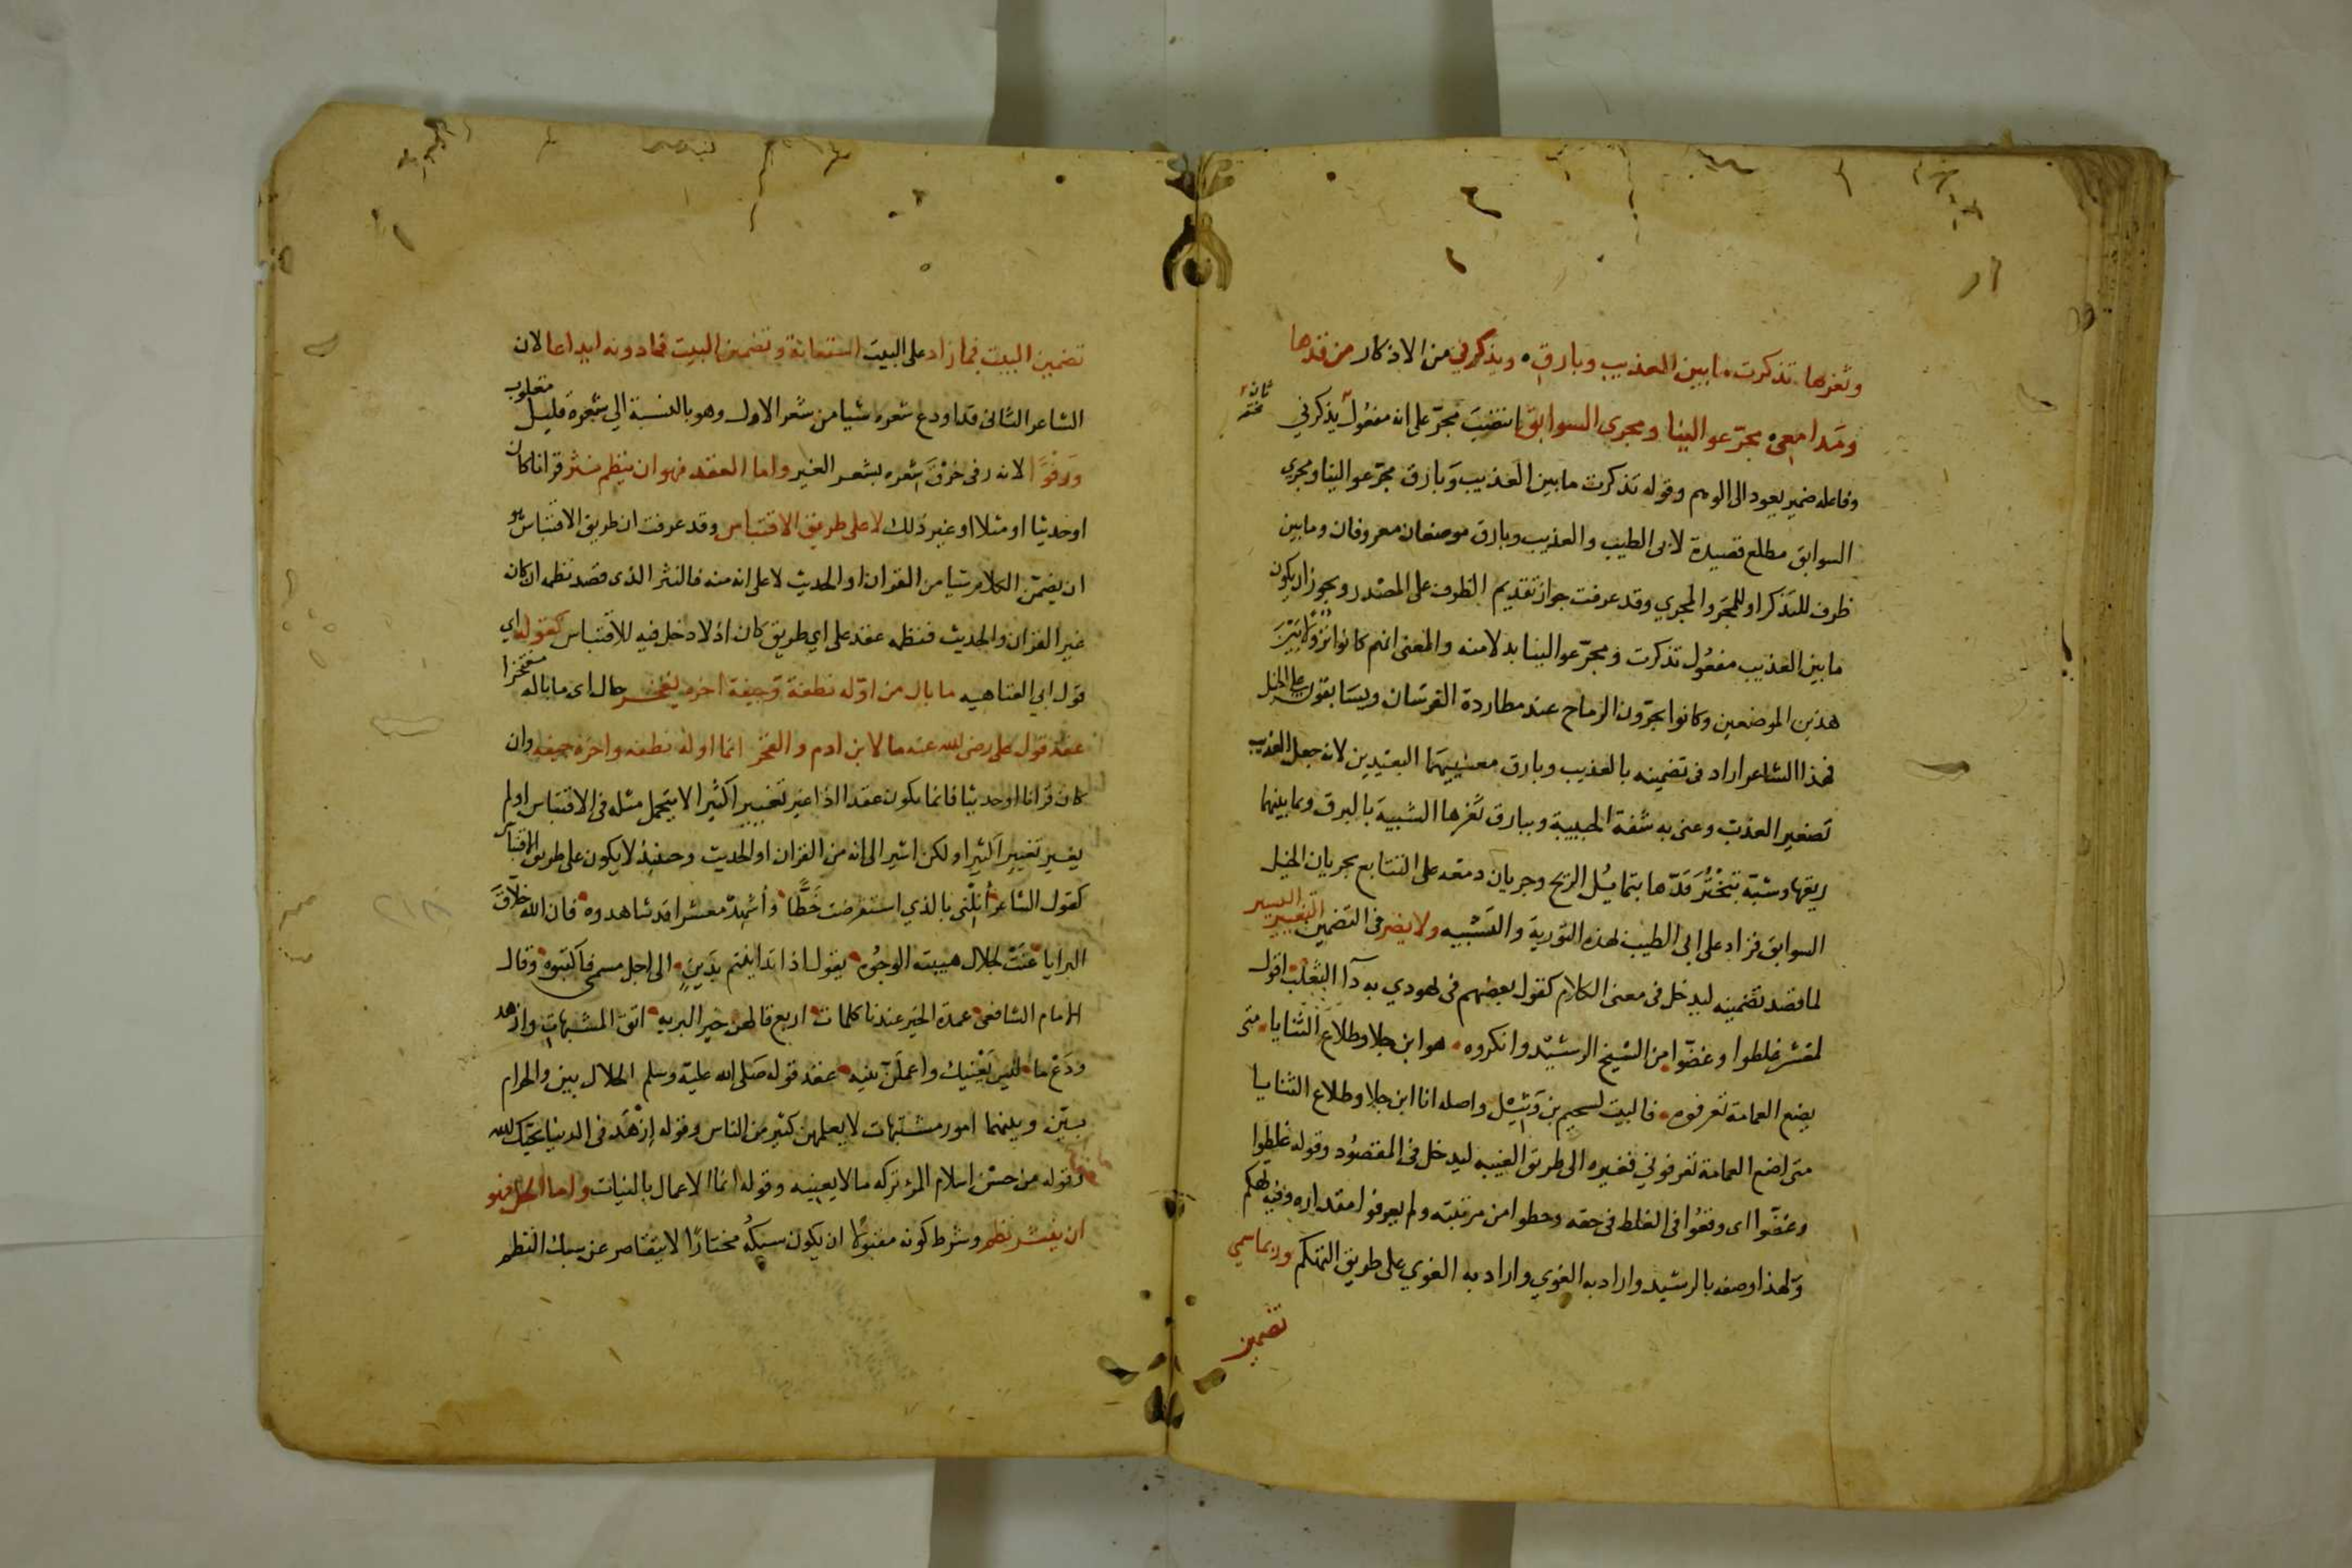 وثغرها تذكرت ما بين العذيب وبارق ويذكرني من الاذكار من قدها
ومدامعي مجرّ عوالينا ومجرى السوابق انتصب مجرّ على انه مفعول يذكرني
وفاعله ضمير يعود الى الوهم وقوله تذكرت ما بين العذيب وبارق مجرّ عوالينا ومجرى
السوابق مطلع قصيدة لابى الطيب والعذيب وبارق موضعان معروفان وما بين
ظرف للتذكر او للمجر والمجري وقد عرفت جواز تقديم الظرف على المصدر ويجوز ان يكون
ما بين العذيب مفعول تذكرت ومجرّ عوالينا بدلا منه والمعنى انهم كانوا نزولا بين
هذين الموضعين وكانوا يجرّون الرماح عند مطاردة الفرسان ويسابقون على الخيل
فهذا الشاعر اراد فى تضمينه بالعذيب وبارق معنييهما البعيدين لانه جعل العذيب
تصغير العذب وعنى به شفة الحبيبة وببارق ثغرها الشبيه بالبرق وبما بينهما
ريقها وشبّه تبختر قدّها بتمايل الرمح وجريان دمعه على التتابع بجريان الخيل
السوابق فزاد على ابى الطيب لهذه التورية والتشبيه ولا يضر فى التضمين التغيير اليسير
لما قصد تضمينه ليدخل فى معنى الكلام كقول بعضهم فى يهودي به داء الثعلب اقول
لمعشر غلطوا وغضّوا من الشيخ الرشيد وانكروه هو ابن جلا وطلاع الثنايا متى
يضع العمامة تعرفوه فالبيت لسحيم بن وثيل واصله انا ابن جلا وطلاع الثنايا
متى اضع العمامة تعرفوني فغيره الى طريق الغيبه ليدخل فى المقصود وقوله غلطوا
وغضّوا اى وقعوا فى الغلط فى حقه وحطوا من مرتبته ولم يعرفوا مقداره وفيه تهكم
ولهذا وصفه بالرشيد واراد به الغوي واراد به الغوي على طريق التهكم وربما سمي
تضمين
تضمين البيت فما زاد على البيت استعانة وتضمين البيت فما دونه ايداعا لان
الشاعر الثانى قد اودع شعره شيا من شعر الاول وهو بالنسبة الى شعره قليل مغلوب
ورفوا لانه رفى خرق شعره بشعر الغير واما العقد فهو ان ينظم نثر قرانا كان
او حديثا او مثلا او غير ذلك لا على طريق الاقتباس وقد عرفت ان طريق الاقتباس هو
ان يضمّن الكلام شيا من القران او الحديث لا على انه منه فالنثر الذى قصد نظمه ان كان
غير القران والحديث فنظمه عقد على اي طريق كان اذ لا دخل فيه للاقتباس كقوله اي
قول ابي العتاهيه ما بال من اوّله نطفة وجيفة اخره يفخر حال اى ما باله مفتخرا
عقد قول على رضى الله عنه ما لابن ادم والفخر انما اوله نطفه واخره جيفه وان
كان قرانا او حديثا فانما يكون عقدا اذا غير تغييرا كثيرا لا يتحمل مثله فى الاقتباس او لم
يغير تغييرا كثيرا ولكن اشير الى انه من القران او الحديث وحينئذ لا يكون على طريق الاقتباس
كقول الشاعر أنلني بالذي استقرضت خطّا وأشهد معشرا قد شاهدوه فان الله خلاق
البرايا عنت لجلال هيبته الوجوه يقول اذا تداينتم بدين الى اجل مسمى فاكتبوه وقال
الامام الشافعى عمدة الخير عندنا كلمات اربع قالهن خير البريه اتق المشبهات وازهد
ودع ما ليس يعنيك واعملن بنيه عقد قوله صلى الله عليه وسلم الحلال بين والحرام
بيّن وبينهما امور مشتبهات لا يعلمهن كثير من الناس وقوله ازهد فى الدنيا يحبّك الله
وقوله من حسن اسلام المرء تركه ما لا يعنيه وقوله انما الاعمال بالنيات واما الحل فهو
ان ينثر نظم وشرط كونه مقبولا ان يكون سبكه مختارا لا يتقاصر عن سبك النظم